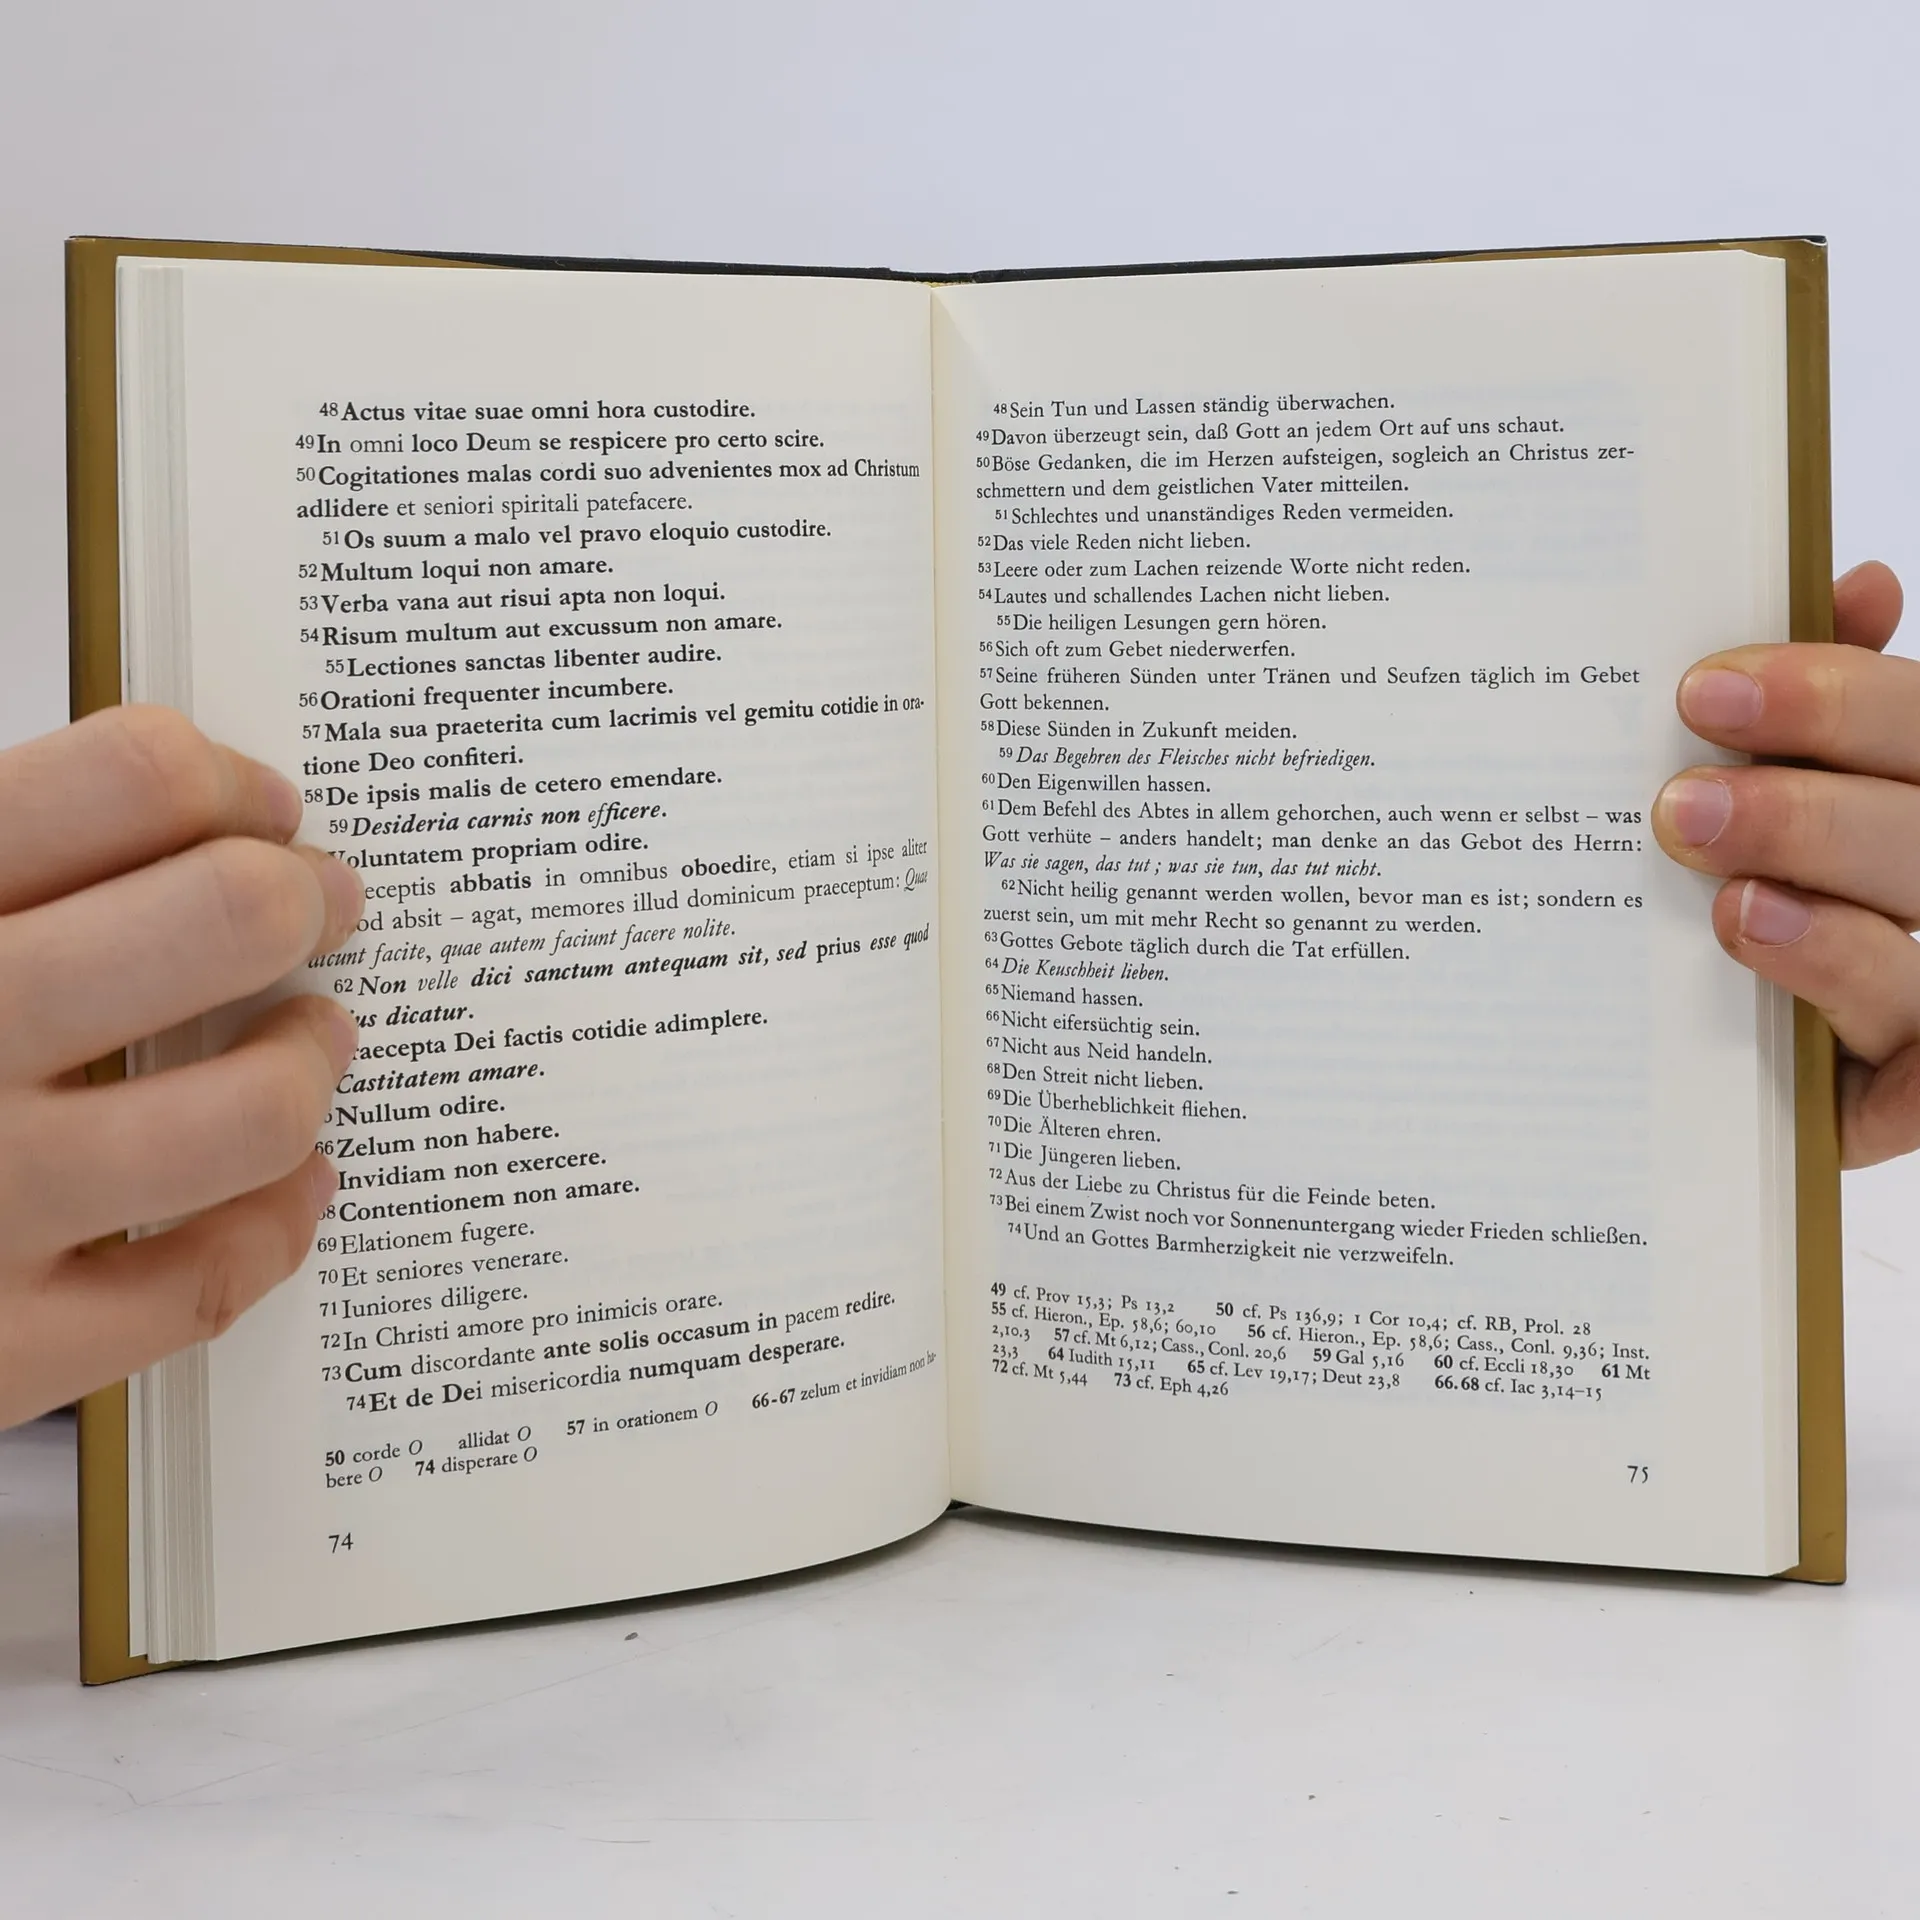 48 Actus vitae suae omni hora custodire.
49 In omni loco Deum se respicere pro certo scire.
50 Cogitationes malas cordi suo advenientes mox ad Christum
adlidere et seniori spiritali patefacere.
51 Os suum a malo vel pravo eloquio custodire.
52 Multum loqui non amare.
53 Verba vana aut risui apta non loqui.
54 Risum multum aut excussum non amare.
55 Lectiones sanctas libenter audire.
56 Orationi frequenter incumbere.
57 Mala sua praeterita cum lacrimis vel gemitu cotidie in ora-
tione Deo confiteri.
58 De ipsis malis de cetero emendare.
59 Desideria carnis non efficere.
Voluntatem propriam odire.
eceptis abbatis in omnibus oboedire, etiam si ipse aliter
od absit – agat, memores illud dominicum praeceptum: Quae
dicunt facite, quae autem faciunt facere nolite.
62 Non velle dici sanctum antequam sit, sed prius esse quod
ius dicatur.
raecepta Dei factis cotidie adimplere.
Castitatem amare.
Nullum odire.
66 Zelum non habere.
Invidiam non exercere.
8 Contentionem non amare.
69 Elationem fugere.
70 Et seniores venerare.
71 Iuniores diligere.
72 In Christi amore pro inimicis orare.
73 Cum discordante ante solis occasum in pacem redire.
74 Et de Dei misericordia numquam desperare.
50 corde O allidat O 57 in orationem O 66-67 zelum et invidiam non ha-
bere O 74 disperare O
74
48 Sein Tun und Lassen ständig überwachen.
49 Davon überzeugt sein, daß Gott an jedem Ort auf uns schaut.
50 Böse Gedanken, die im Herzen aufsteigen, sogleich an Christus zer-
schmettern und dem geistlichen Vater mitteilen.
51 Schlechtes und unanständiges Reden vermeiden.
52 Das viele Reden nicht lieben.
53 Leere oder zum Lachen reizende Worte nicht reden.
54 Lautes und schallendes Lachen nicht lieben.
55 Die heiligen Lesungen gern hören.
56 Sich oft zum Gebet niederwerfen.
57 Seine früheren Sünden unter Tränen und Seufzen täglich im Gebet
Gott bekennen.
58 Diese Sünden in Zukunft meiden.
59 Das Begehren des Fleisches nicht befriedigen.
60 Den Eigenwillen hassen.
61 Dem Befehl des Abtes in allem gehorchen, auch wenn er selbst – was
Gott verhüte – anders handelt; man denke an das Gebot des Herrn:
Was sie sagen, das tut; was sie tun, das tut nicht.
62 Nicht heilig genannt werden wollen, bevor man es ist; sondern es
zuerst sein, um mit mehr Recht so genannt zu werden.
63 Gottes Gebote täglich durch die Tat erfüllen.
64 Die Keuschheit lieben.
65 Niemand hassen.
66 Nicht eifersüchtig sein.
67 Nicht aus Neid handeln.
68 Den Streit nicht lieben.
69 Die Überheblichkeit fliehen.
70 Die Älteren ehren.
71 Die Jüngeren lieben.
72 Aus der Liebe zu Christus für die Feinde beten.
73 Bei einem Zwist noch vor Sonnenuntergang wieder Frieden schließen.
74 Und an Gottes Barmherzigkeit nie verzweifeln.
49 cf. Prov 15,3; Ps 13,2 50 cf. Ps 136,9; 1 Cor 10,4; cf. RB, Prol. 28
55 cf. Hieron., Ep. 58,6; 60,10 56 cf. Hieron., Ep. 58,6; Cass., Conl. 9,36; Inst.
2,10.3 57 cf. Mt 6,12; Cass., Conl. 20,6 59 Gal 5,16 60 cf. Eccli 18,30 61 Mt
23,3 64 Iudith 15,11 65 cf. Lev 19,17; Deut 23,8 66.68 cf. Iac 3,14–15
72 cf. Mt 5,44 73 cf. Eph 4,26
75